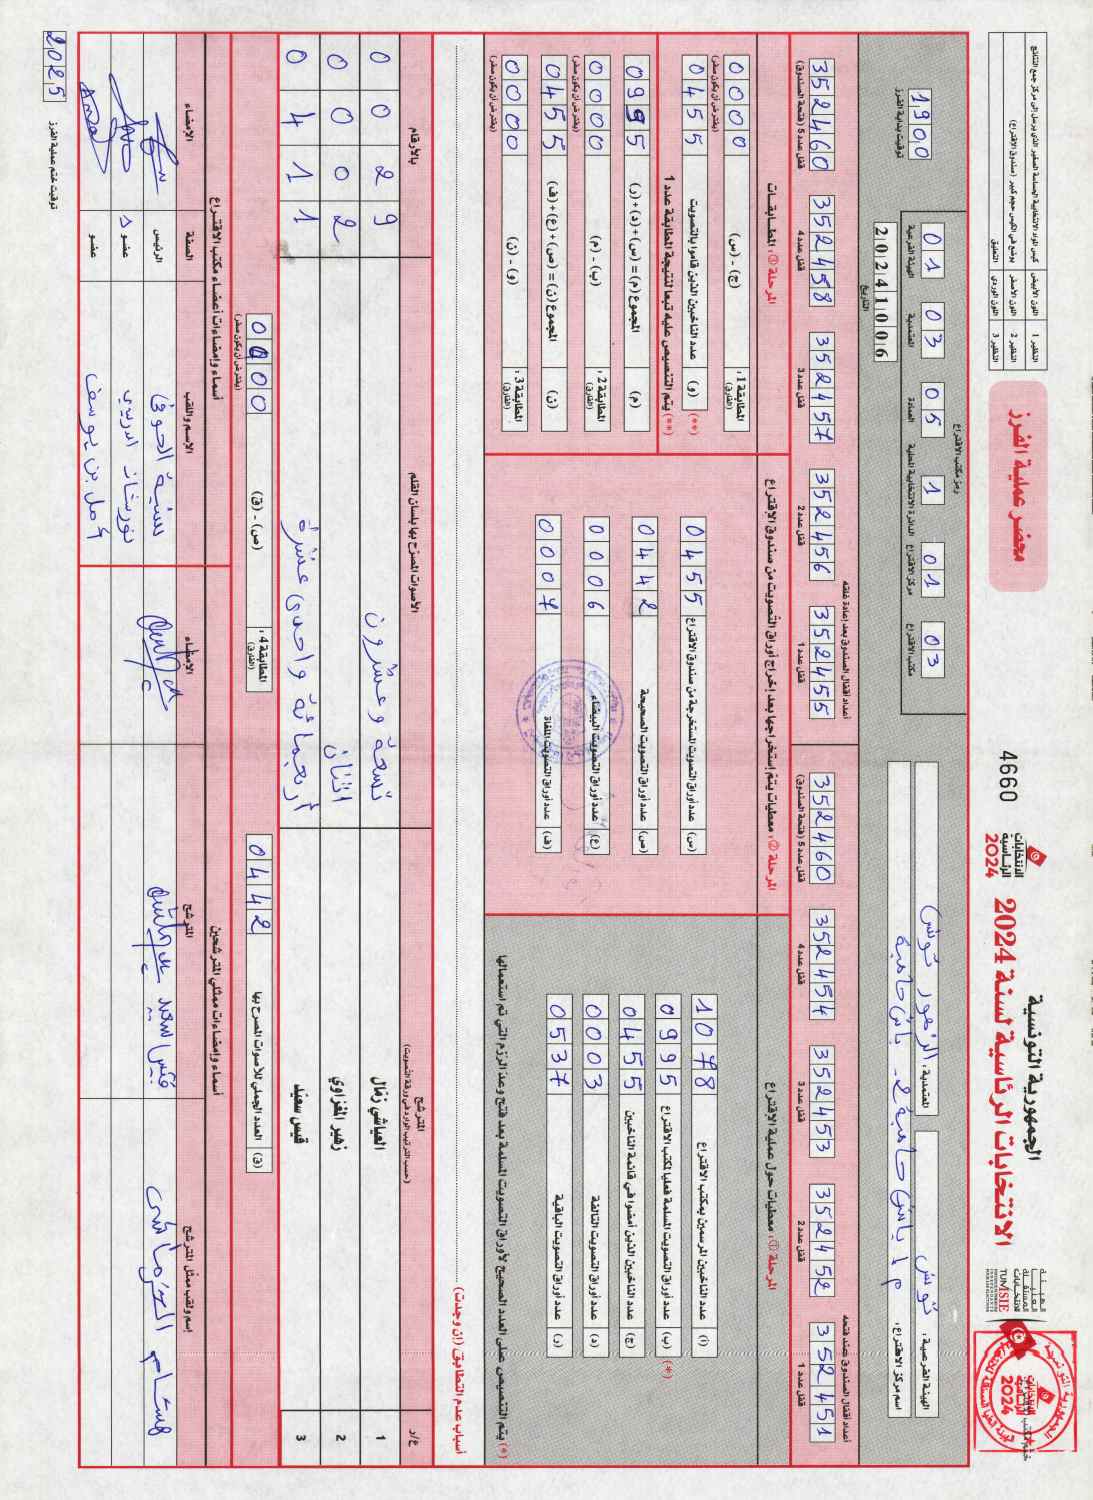 الجمهورية التونسية
الانتخابات الرئاسية لسنة 2024
الانتخابات الرئاسية 2024
4660
محضر عملية الفرز
النظير 1 اللون الأبيض كيس المواد الانتخابية الحساسة الصغير الذي يرسل إلى مركز جمع النتائج
النظير 2 اللون الأصفر يوضع في الكيس حجم كبير (صندوق الاقتراع)
النظير 3 اللون الوردي التعليق
الهيئة الفرعية: تونس
المعتمدية: الزهور تونس
اسم مركز الاقتراع:
رمز مكتب الاقتراع
الهيئة الفرعية 01
المعتمدية 03
العمادة 05
الدائرة الانتخابية المحلية 1
مركز الاقتراع 01
مكتب الاقتراع 03
التاريخ 20241006
توقيت بداية الفرز 1900
أعداد أقفال الصندوق عند فتحه
قفل عدد 1 352451
قفل عدد 2 352452
قفل عدد 3 352453
قفل عدد 4 352454
قفل عدد 5 (فتحة الصندوق) 352460
أعداد أقفال الصندوق بعد إعادة غلقه
قفل عدد 1 352455
قفل عدد 2 352456
قفل عدد 3 352457
قفل عدد 4 352458
قفل عدد 5 (فتحة الصندوق) 352460
المرحلة ①: معطيات حول عملية الاقتراع
(أ) عدد الناخبين المرسمين بمكتب الاقتراع 1078
(*) (ب) عدد أوراق التصويت المسلمة فعليا لمكتب الاقتراع 0995
(ج) عدد الناخبين الذين أمضوا في قائمة الناخبين 0455
(د) عدد أوراق التصويت التالفة 0003
(ر) عدد أوراق التصويت الباقية 0537
(*) يتم التنصيص على العدد الصحيح لأوراق التصويت المسلمة بعد فتح وعد الرزم التي تم استعمالها
المرحلة ②: معطيات يتم إستخراجها بعد إخراج أوراق التصويت من صندوق الاقتراع
(س) عدد أوراق التصويت المستخرجة من صندوق الاقتراع 0455
(ص) عدد أوراق التصويت الصحيحة 0442
(ع) عدد أوراق التصويت البيضاء 0006
(ف) عدد أوراق التصويت الملغاة 0007
المرحلة ③: المطابقات
المطابقة 1: (الفارق) (ج) - (س) 0000 (يفترض أن يكون صفر)
(**) (و) عدد الناخبين الذين قاموا بالتصويت 0455
(**) يتم التنصيص عليه تبعا لنتيجة المطابقة عدد 1
(م) المجموع (م) = (س)+(د)+(ر) 0995
المطابقة 2: (الفارق) (ب) - (م) 0000 (يفترض أن يكون صفر)
(ن) المجموع (ن) = (ص)+(ع)+(ف) 0455
المطابقة 3: (الفارق) (و) - (ن) 0000 (يفترض أن يكون صفر)
أسباب عدم التطابق (إن وجدت)
ع/ر المترشح (حسب الترتيب الوارد في ورقة التصويت) الأصوات المصرح بها بلسان القلم بالأرقام
1 العياشي زمّال تسعة وعشرون 0029
2 زهير المغزاوي اثنان 0002
3 قيس سعيّد أربعمائة واحدى عشرة 0411
(ق) العدد الجملي للأصوات المصرح بها 0442
المطابقة 4: (الفارق) (ص) - (ق) 0000 (يفترض أن يكون صفر)
أسماء وإمضاءات ممثلي المترشحين
إسم ولقب ممثل المترشح المترشح الإمضاء
قيس سعيد
أسماء وإمضاءات أعضاء مكتب الاقتراع
الإسم واللقب الصفة الإمضاء
الرئيس
عضو
أمل بن يوسف عضو
توقيت ختم عملية الفرز 2025